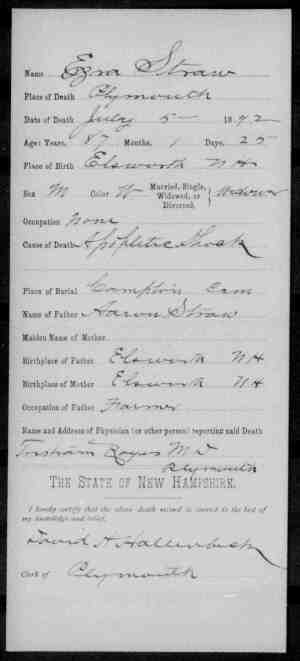 Name Ezra Straw
Place of Death Plymouth
Date of Death July 5 1892
Age: Years, 87 Months, 1 Days, 25
Place of Birth Elsworth NH
Sex M Color W Married, Single, Widowed, or Divorced, } Widower
Occupation None
Cause of Death Apopletic Shock
Place of Burial Campton Cem
Name of Father Aaron Straw
Maiden Name of Mother
Birthplace of Father Elsworth NH
Birthplace of Mother Elsworth NH
Occupation of Father Farmer
Name and Address of Physician (or other person) reporting said Death
Rogers M D
Plymouth
THE STATE OF NEW HAMPSHIRE.
I hereby certify that the above death record is correct to the best of
my knowledge and belief.
David H Hallenbeck
Clerk of Plymouth